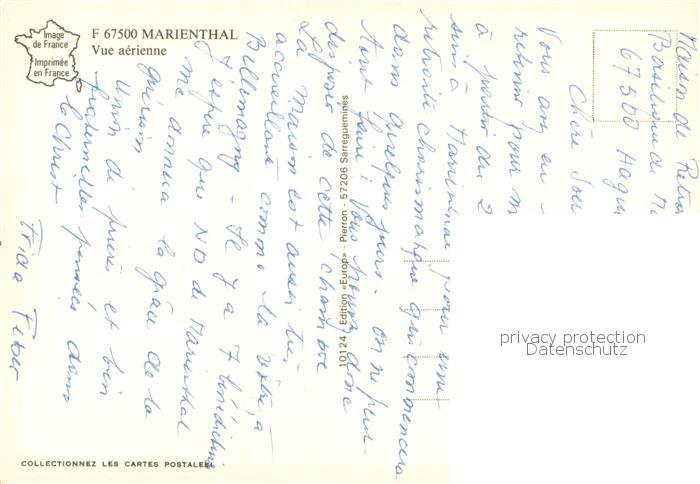 Image
de France
Imprimée
en France
F 67500 MARIENTHAL
Vue aérienne
Maison de Retrai
Basilique de
67500 Hagu
Chère Soeur
Vous avez eu
retenir pour m
à partir du 2
suis à Marienthal pour une
retraite charismatique qui commencera
dans quelques jours - on ne peut
tout faire ! Vous pouvez donc
disposer de cette chambre
La maison est aussi très
accueillante comme la vôtre, à
Bellemagny - Il y a 7 bénédictines
J'espère que ND de Marienthal
me donnera la grâce de la
guérison
Union de prières et bien
fraternelles pensées dans
le Christ
Frida
10124 - Edition «Europ» - Pierron - 57206 Sarreguemines
COLLECTIONNEZ LES CARTES POSTALES
privacy protection
Datenschutz